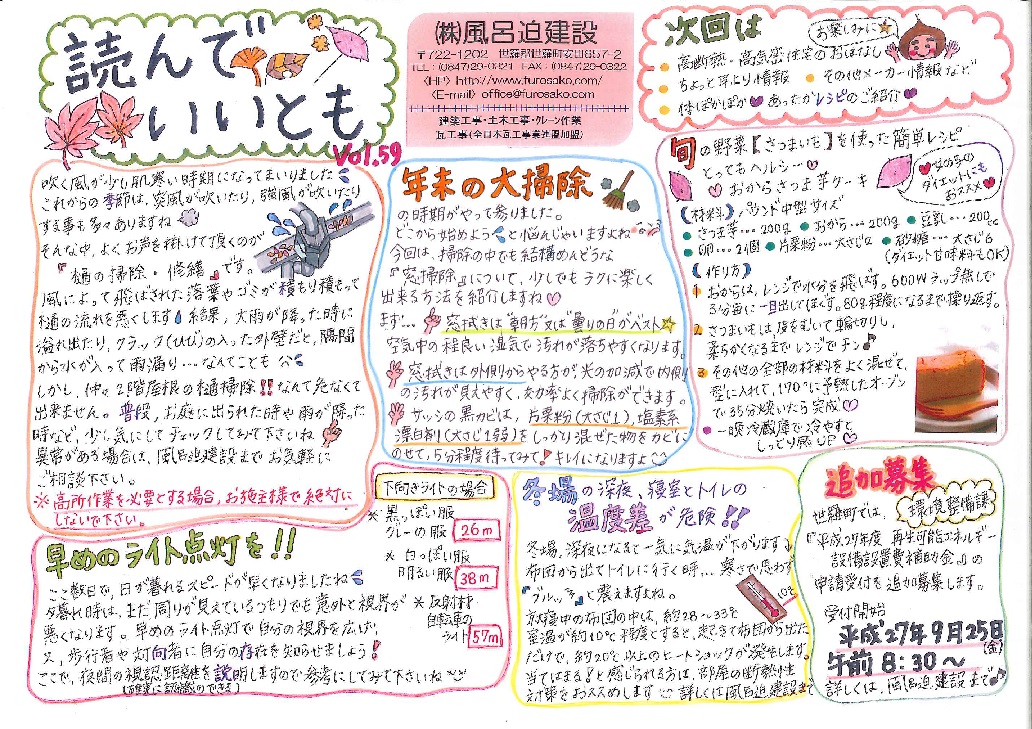 読んで
いいとも
Vol.59
㈱風呂迫建設
〒722-1202 世羅郡世羅町安田657-2
TEL:(0847)29-0321 FAX:(0847)29-0322
〈HP〉http://www.furosako.com/
〈E-mail〉office@furosako.com
建築工事・土木工事・クレーン作業
瓦工事(全日本瓦工事業連盟加盟)
次回は
お楽しみに
高断熱・高気密住宅のおはなし
ちょっと耳より情報 その他メーカー情報など
体ぽかぽか♥あったかレシピのご紹介
吹く風が少し肌寒い時期になってまいりました
これからの季節は、突風が吹いたり、強風が吹いたり
する事も多々ありますね
そんな中、よくお声を掛けて頂くのが
『樋の掃除・修繕』です。
風によって飛ばされた落葉やゴミが積もり積もって
樋の流れを悪くします 結果、大雨が降った時に
溢れ出たり、クラック(ひび)の入った外壁だと、隙間
から水が入って雨漏り…なんてことも
しかし、仲々2階屋根の樋掃除!!なんて危なくて
出来ません。普段、お庭に出られた時や雨が降った
時など、少し気にしてチェックしてみて下さいね
異常がある場合は、風呂迫建設までお気軽に
ご相談下さい。
※高所作業を必要とする場合、お施主様で絶対に
しないで下さい。
年末の大掃除
の時期がやって参りました。
どこから始めよう と悩んじゃいますよね
今回は、掃除の中でも結構めんどうな
『窓掃除』について、少しでもラクに楽しく
出来る方法を紹介しますね♡
まず… 窓拭きは"朝方"又は"曇りの日"がベスト☆
空気中の程良い湿気で汚れが落ちやすくなります。
窓拭きは外側からやる方が、光の加減で内側
の汚れが見えやすく、効率よく掃除ができます。
サッシの黒カビは、片栗粉(大さじ1)、塩素系
漂白剤(大さじ1弱)をしっかり混ぜた物をカビに
のせて、5分程度待ってみて!キレイになりますよ
旬の野菜【さつまいも】を使った簡単レシピ
とってもヘルシー♡
おからさつま芋ケーキ
女性の方の
ダイエットにも
おススメ♥
〈材料〉パウンド中型サイズ
さつま芋…200g おから…200g 豆乳…200cc
卵…2個 片栗粉…大さじ2 砂糖…大さじ6
(ダイエット甘味料もOK)
〈作り方〉
1 おからは、レンジで水分を飛ばす。600Wラップ無しで
3分毎に一旦出してまぜ、80g程度になるまで繰り返す。
2 さつまいもは皮をむいて輪切りし、
柔らかくなるまでレンジでチン♪
3 その他の全部の材料をよく混ぜて、
型に入れて、170℃に予熱したオーブン
で35分焼いたら完成♡
一晩冷蔵庫で冷やすと
しっとり感UP♥
早めのライト点灯を!!
ここ数日で、日が暮れるスピードが早くなりましたね
夕暮れ時は、まだ周りが見えているつもりでも意外と視界が
悪くなります。早めのライト点灯で自分の視界を広げ、
又、歩行者や対向者に自分の存在を知らせましょう!
ここで、夜間の視認距離を説明しますので参考にしてみて下さいね
(確実に認識のできる)
下向きライトの場合
※黒っぽい服
グレーの服 26m
※白っぽい服
明るい服 38m
※反射材
自転車の
ライト 57m
冬場の深夜、寝室とトイレの
温度差が危険!!
冬場、深夜になると一気に気温が下がります
布団から出てトイレに行く時…寒さで思わず
"ブルッ"と震えますよね。
就寝中の布団の中は、約28～33℃
室温が約10℃程度とすると、起きて布団から出た
だけで、約20℃以上のヒートショックが発生します。
当てはまる!と感じられる方は、部屋の断熱性
対策をおススメします 詳しくは風呂迫建設まで
10℃
追加募集
世羅町では、環境整備課
『平成27年度 再生可能エネルギー
設備設置費補助金』の
申請受付を追加募集します。
受付開始
平成27年9月25日
(金)
午前8:30～
詳しくは、風呂迫建設まで♪